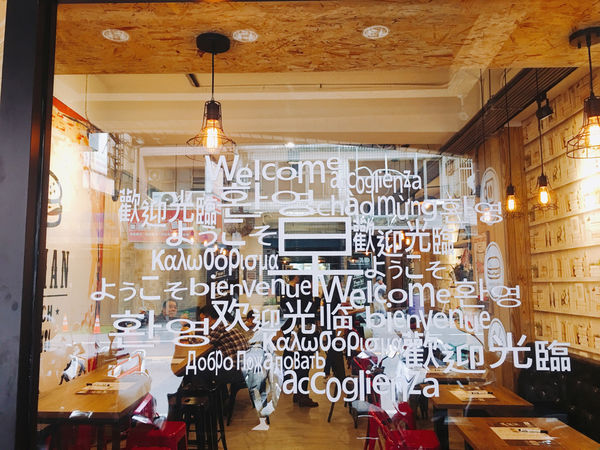 Welcome
accoglienza
歡迎光臨 환영 chào mừng 환영
ようこそ 歡迎光臨
Καλωσόρισμα ようこそ
ようこそ bienvenue Welcome 환영
환영 欢迎光临 bienvenue
Καλωσόρισμα
Добро Пожаловать 歡迎光臨
accoglienza